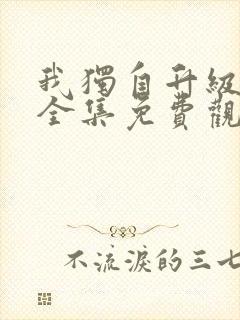 我獨自升級
全集免費觀
不流淚的三七